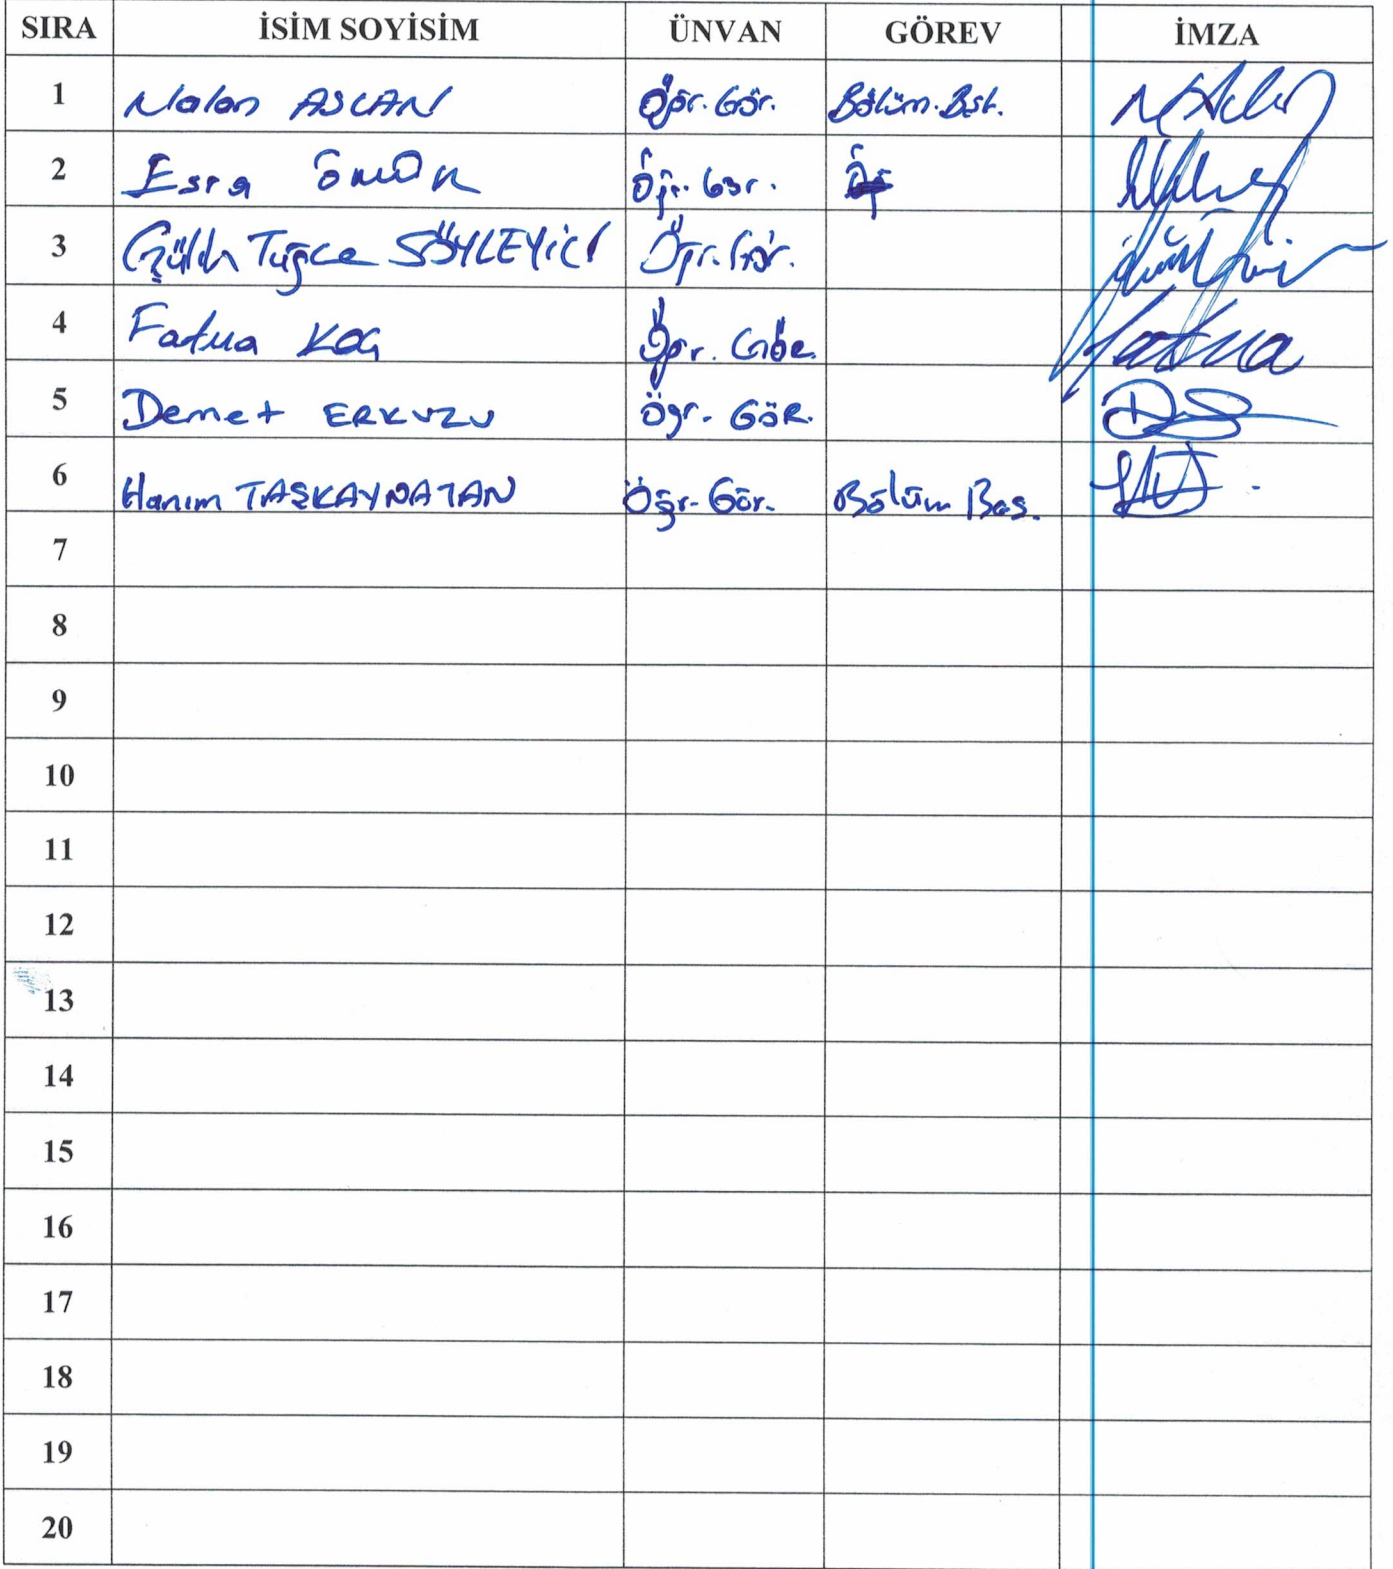 SIRA İSİM SOYİSİM ÜNVAN GÖREV İMZA
1 Nalan ASLAN Öğr. Gör. Bölüm. Bşk.
2 Esra Öğr. Gör.
3 Tuğçe SÖYLEYİCİ Öğr. Gör.
4 Fatma KOÇ Öğr. Gör.
5 Demet ERKUZU Öğr. GÖR.
6 Hanım TAŞKAYNATAN Öğr. Gör. Bölüm Baş.
7
8
9
10
11
12
13
14
15
16
17
18
19
20